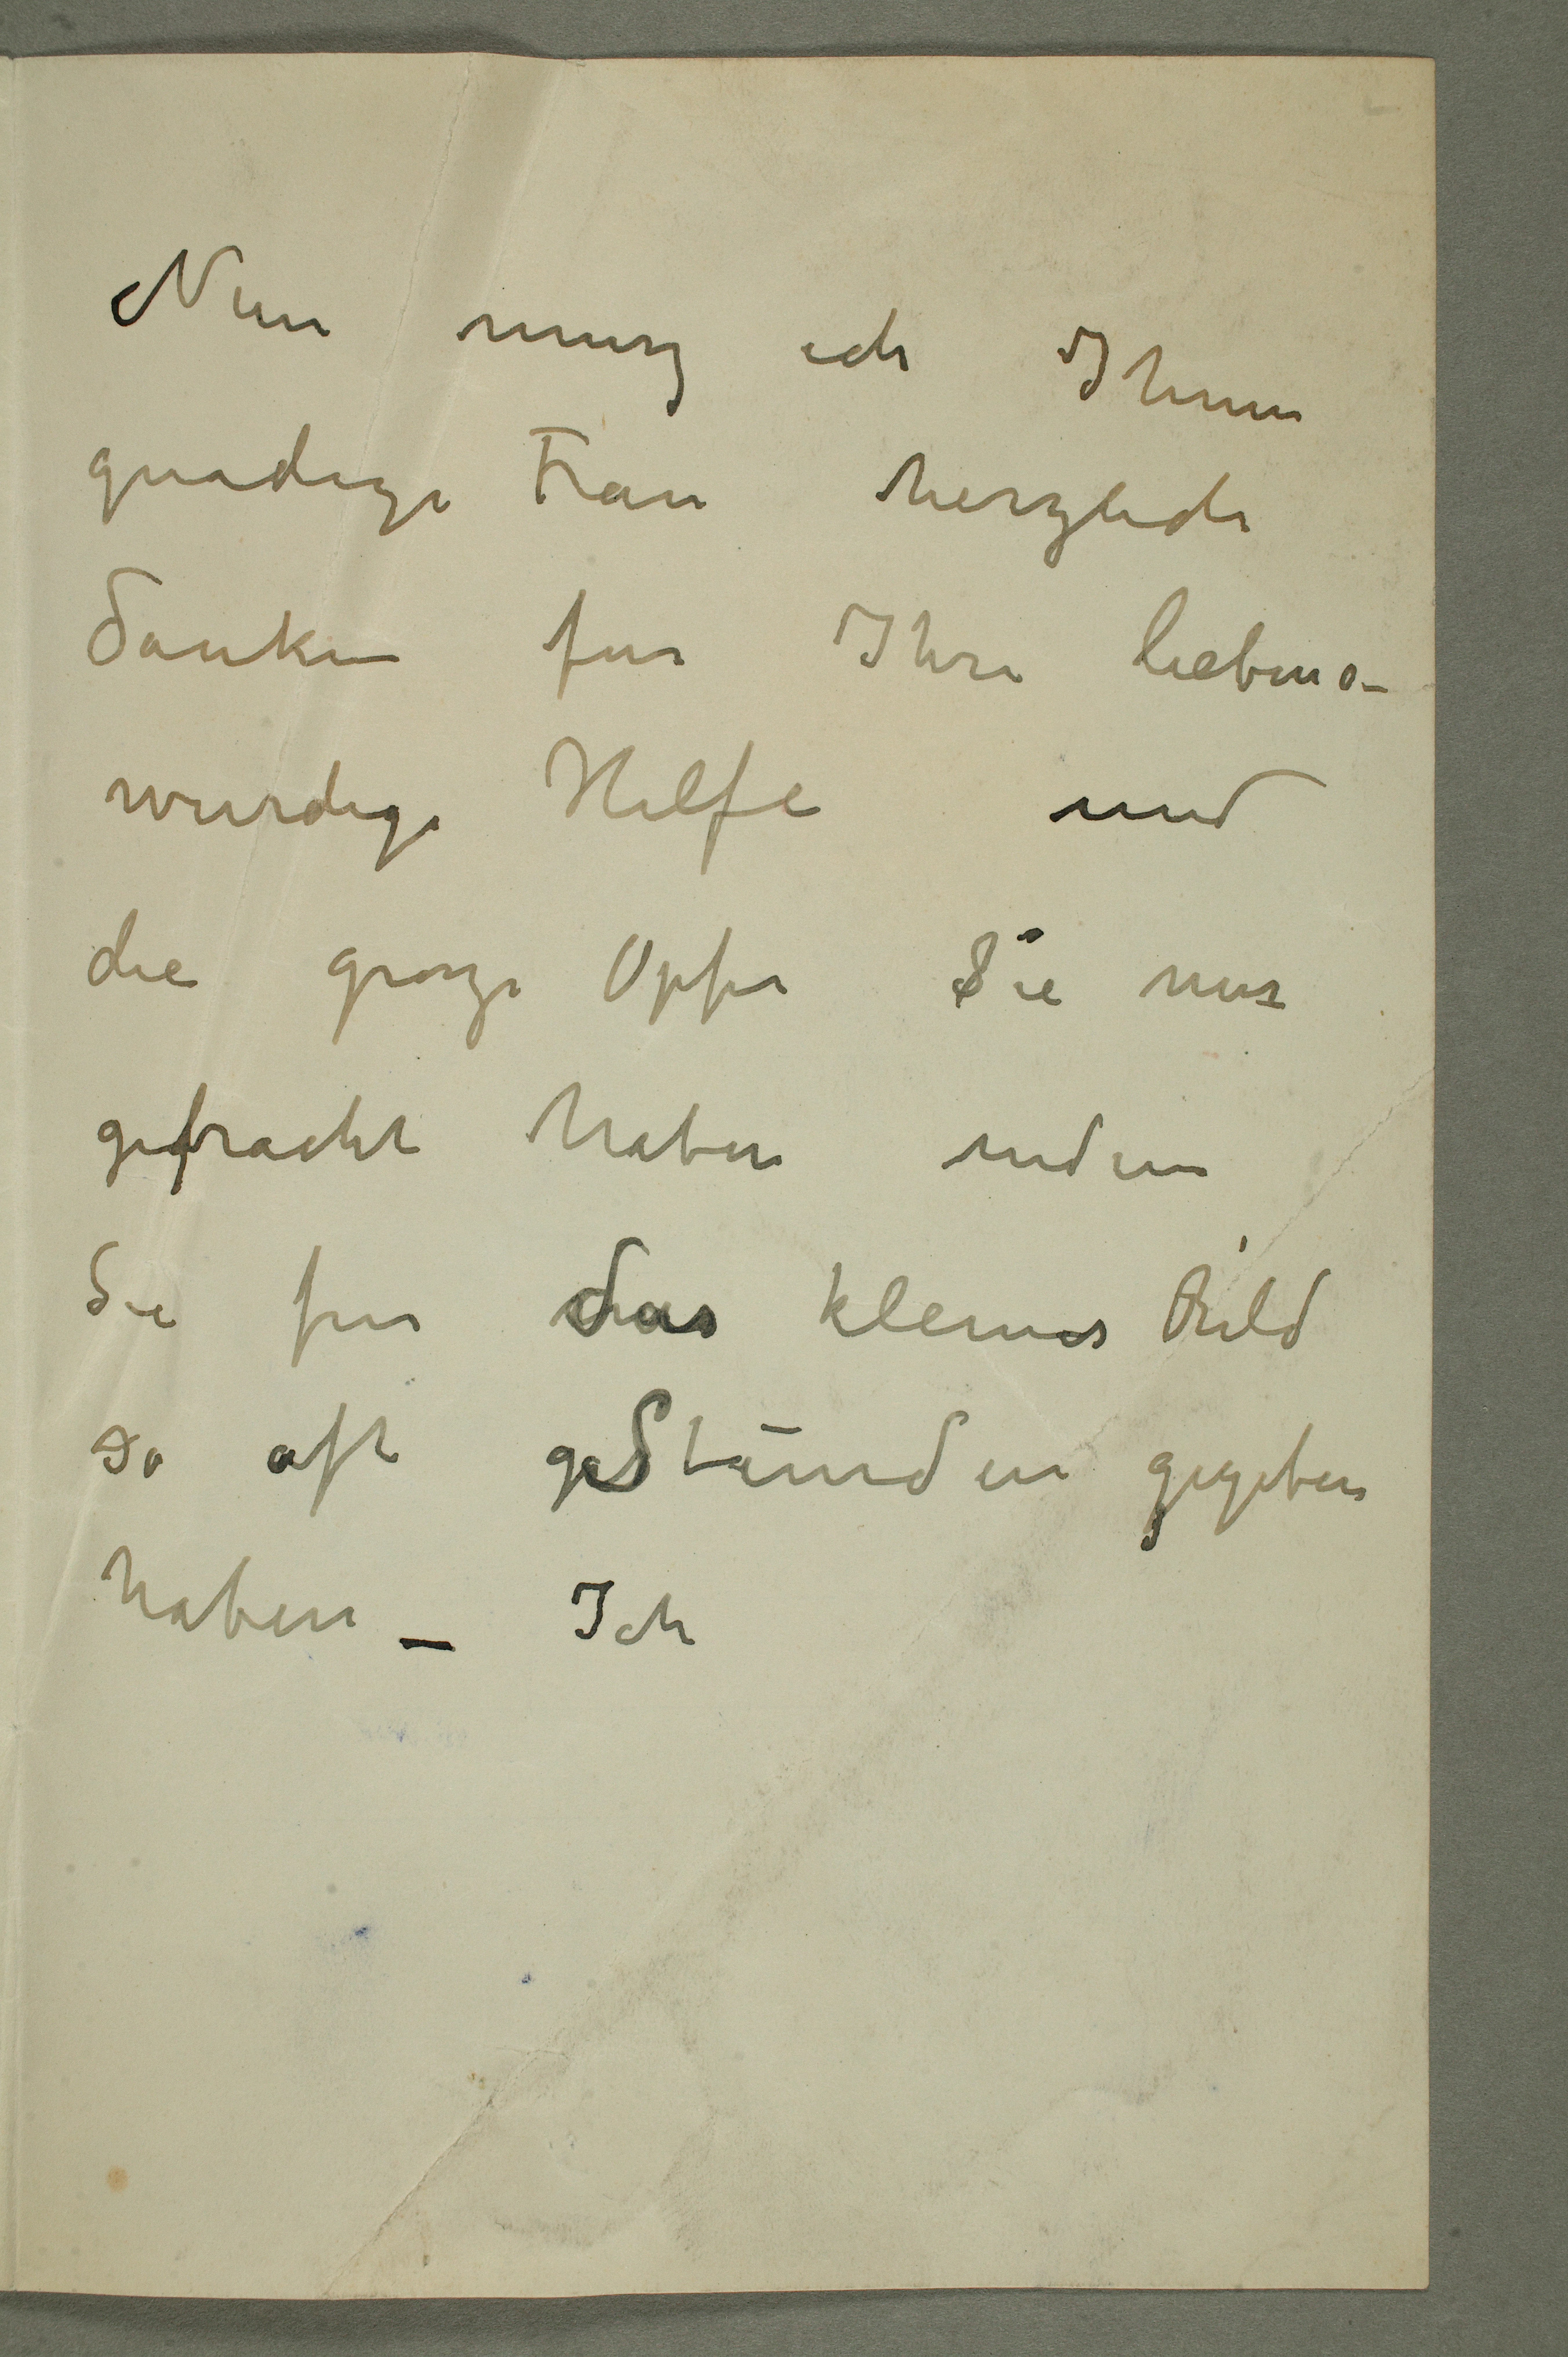 Nun musz ich Ihnen
gnadige Frau herzlich
danken fur Ihre liebens-
wurdige Hilfe und
die grosze Opfer Sie mir
gebracht haben indem
Sie fur das kleines Bild
so oft geStunden gegeben
haben – Ich